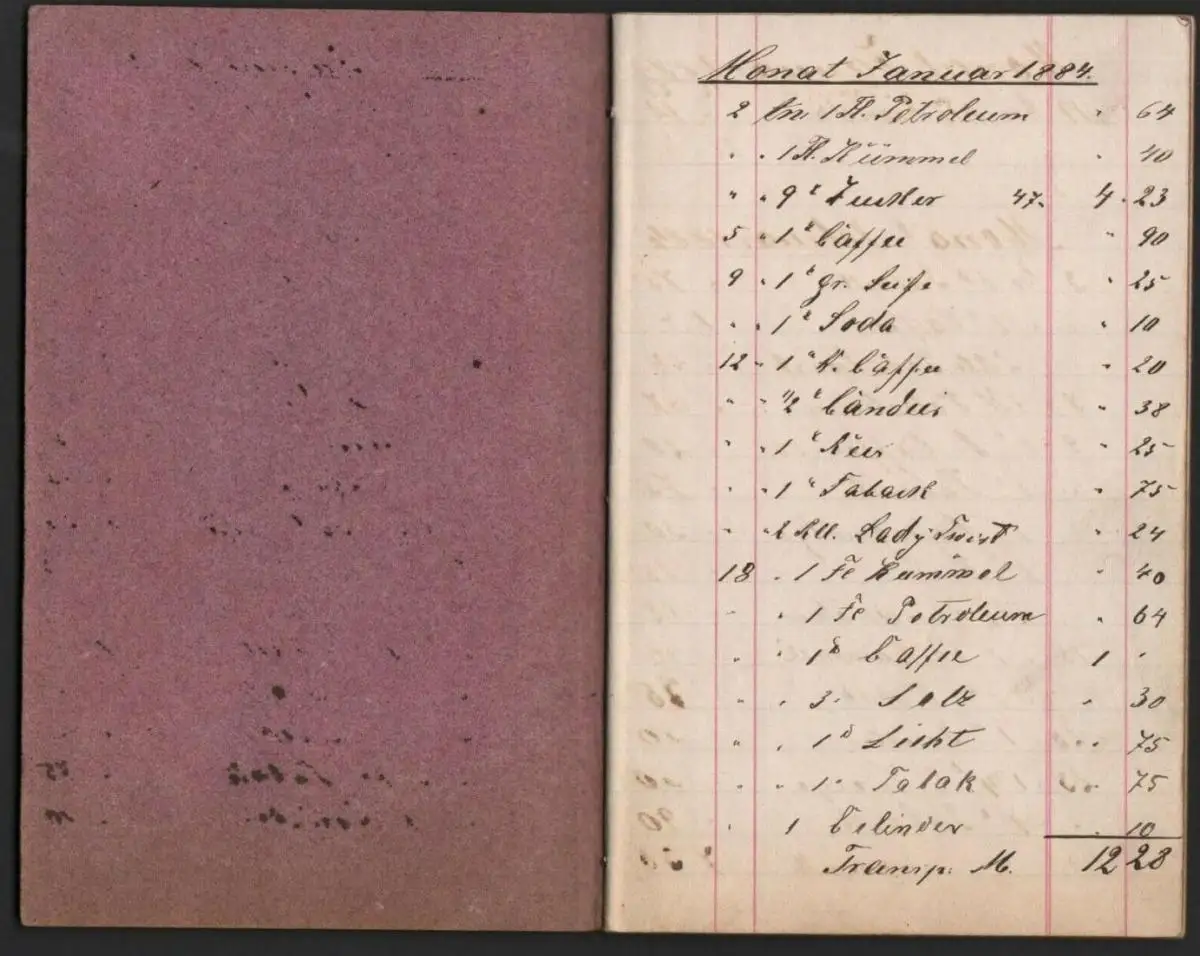 Monat Januar 1884.
2 An 1 Fl. Petroleum " 64
" " 1 Fl. Kümmel " 40
" " 9 ℔ Zucker 47. 4. 23
5 " 1 ℔ Caffee " 90
9 " 1 ℔ gr. Seife " 25
" " 1 ℔ Soda " 10
12 " 1 " K. Caffee " 20
" " 1/2 ℔ Candis " 38
" " 1 ℔ Reis " 25
" " 1 " Taback " 75
" " 2 Rll. Lady Twist " 24
18 " 1 Fl Kümmel " 40
" " 1 Fl Petroleum " 64
" " 1 ℔ Caffee 1 "
" " 3 " Salz " 30
" " 1 ℔ Licht " 75
" " 1 " Tabak " 75
" 1 Celinder " 10
Transp. M. 12 28